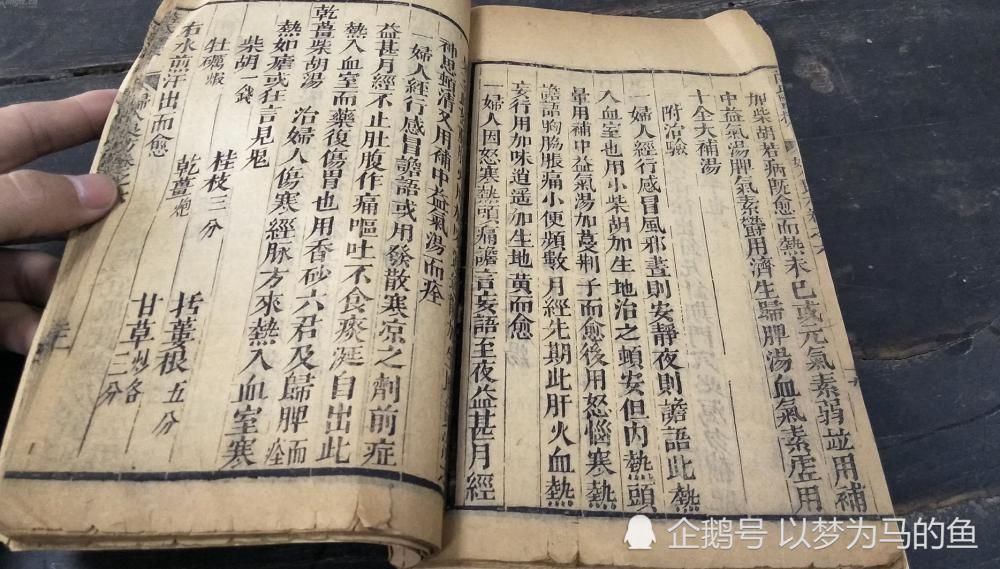 加柴胡若病既愈而熱未已或元氣素弱並用補
中益氣湯脾氣素鬱用濟生歸脾湯血氣素虛用
十全大補湯
附治驗
婦人經行感冒風邪晝則安靜夜則譫語此熱
入血室也用小柴胡加生地治之頓安但內熱頭
暈用補中益氣湯加蔓荆子而愈後用怒惱寒熱
譫語胸脇脹痛小便頻數月經先期此肝火血熱
妄行用加味逍遥加生地黄而愈
一婦人因怒寒熱頭痛譫言妄語至夜益甚月經
神思頓清又用補中益氣湯而痊
一婦人經行感冒譫語或用發散寒凉之劑前症
益甚月經不止肚腹作痛嘔吐不食痰涎自出此
熱入血室而藥復傷胃也用香砂六君及歸脾而痊
乾薑柴胡湯 治婦人傷寒經脉方來熱入血室寒
熱如瘧或狂言見鬼
柴胡一錢 桂枝三分 括蔞根五分
牡礪煆 乾薑炮 甘草炒各二分
右水煎汗出而愈
婦人良方卷之六
企鹅号 以梦为马的鱼